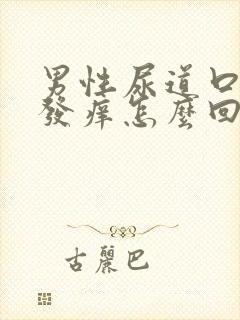 男性尿道口
發痒怎麼回
古麗巴